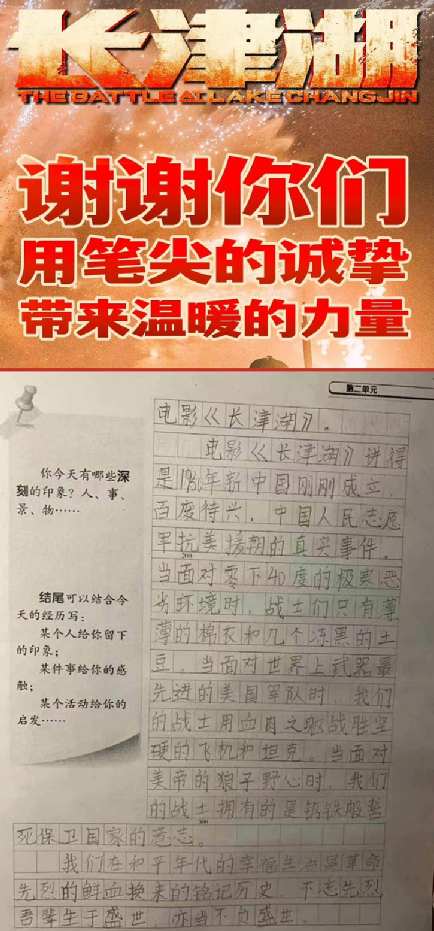 长津湖
THE BATTLE AT LAKE CHANGJIN
谢谢你们
用笔尖的诚挚
带来温暖的力量
第二单元
你今天有哪些深
刻的印象?人、事、
景、物……
结尾可以结合今
天的经历写:
某个人给你留下
的印象;
某件事给你的感
触;
某个活动给你的
启发……
电影《长津湖》。
电影《长津湖》讲得
是1950年新中国刚刚成立,
百废待兴,中国人民志愿
军抗美援朝的真实事件。
200
当面对零下40度的极寒恶
劣环境时,战士们只有薄
薄的棉衣和几个冻黑的土
豆,当面对世界上武器最
先进的美国军队时,我们
的战士用血肉之躯战胜坚
硬的飞机和坦克。当面对
美帝的狼子野心时,我们
的战士拥有的是钢铁般誓
300
死保卫国家的意志。
我们在和平年代的幸福生活是革命
先烈的鲜血换来的铭记历史,不忘先烈
吾辈生于盛世,亦当不负盛世。